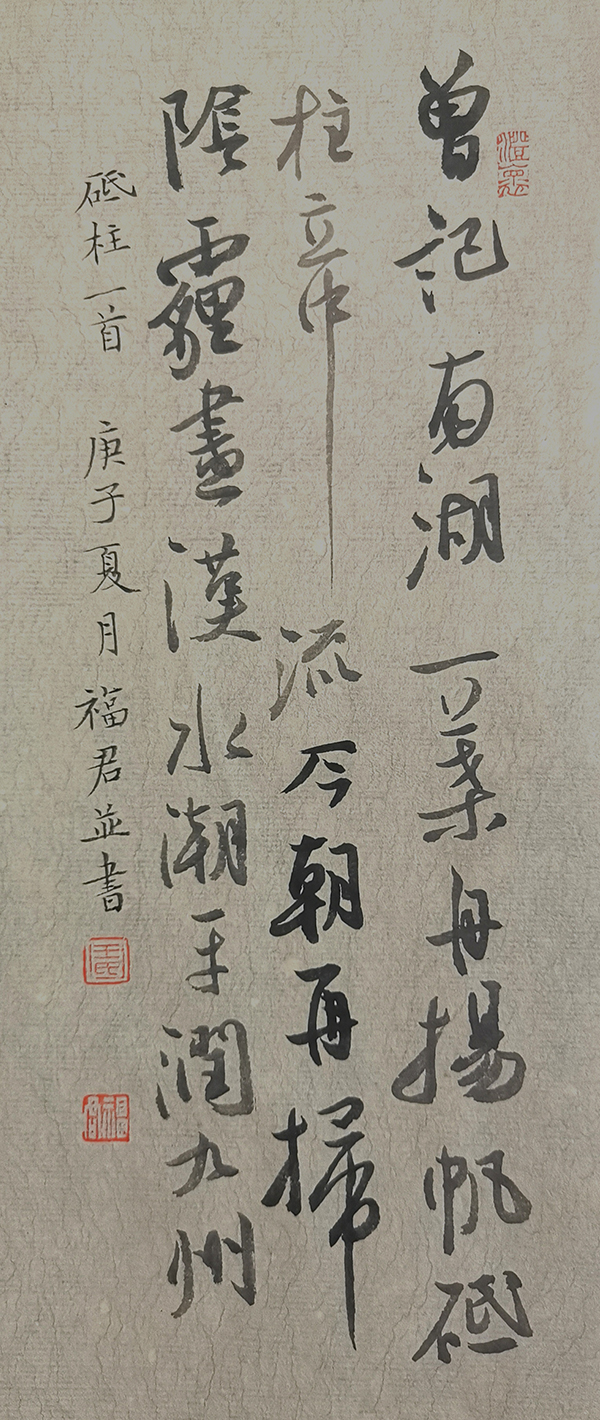 曾記南湖一葉舟揚帆砥
柱立中流今朝再掃
陰霾盡漢水潮平潤九州
砥柱一首 庚子夏月福君並書